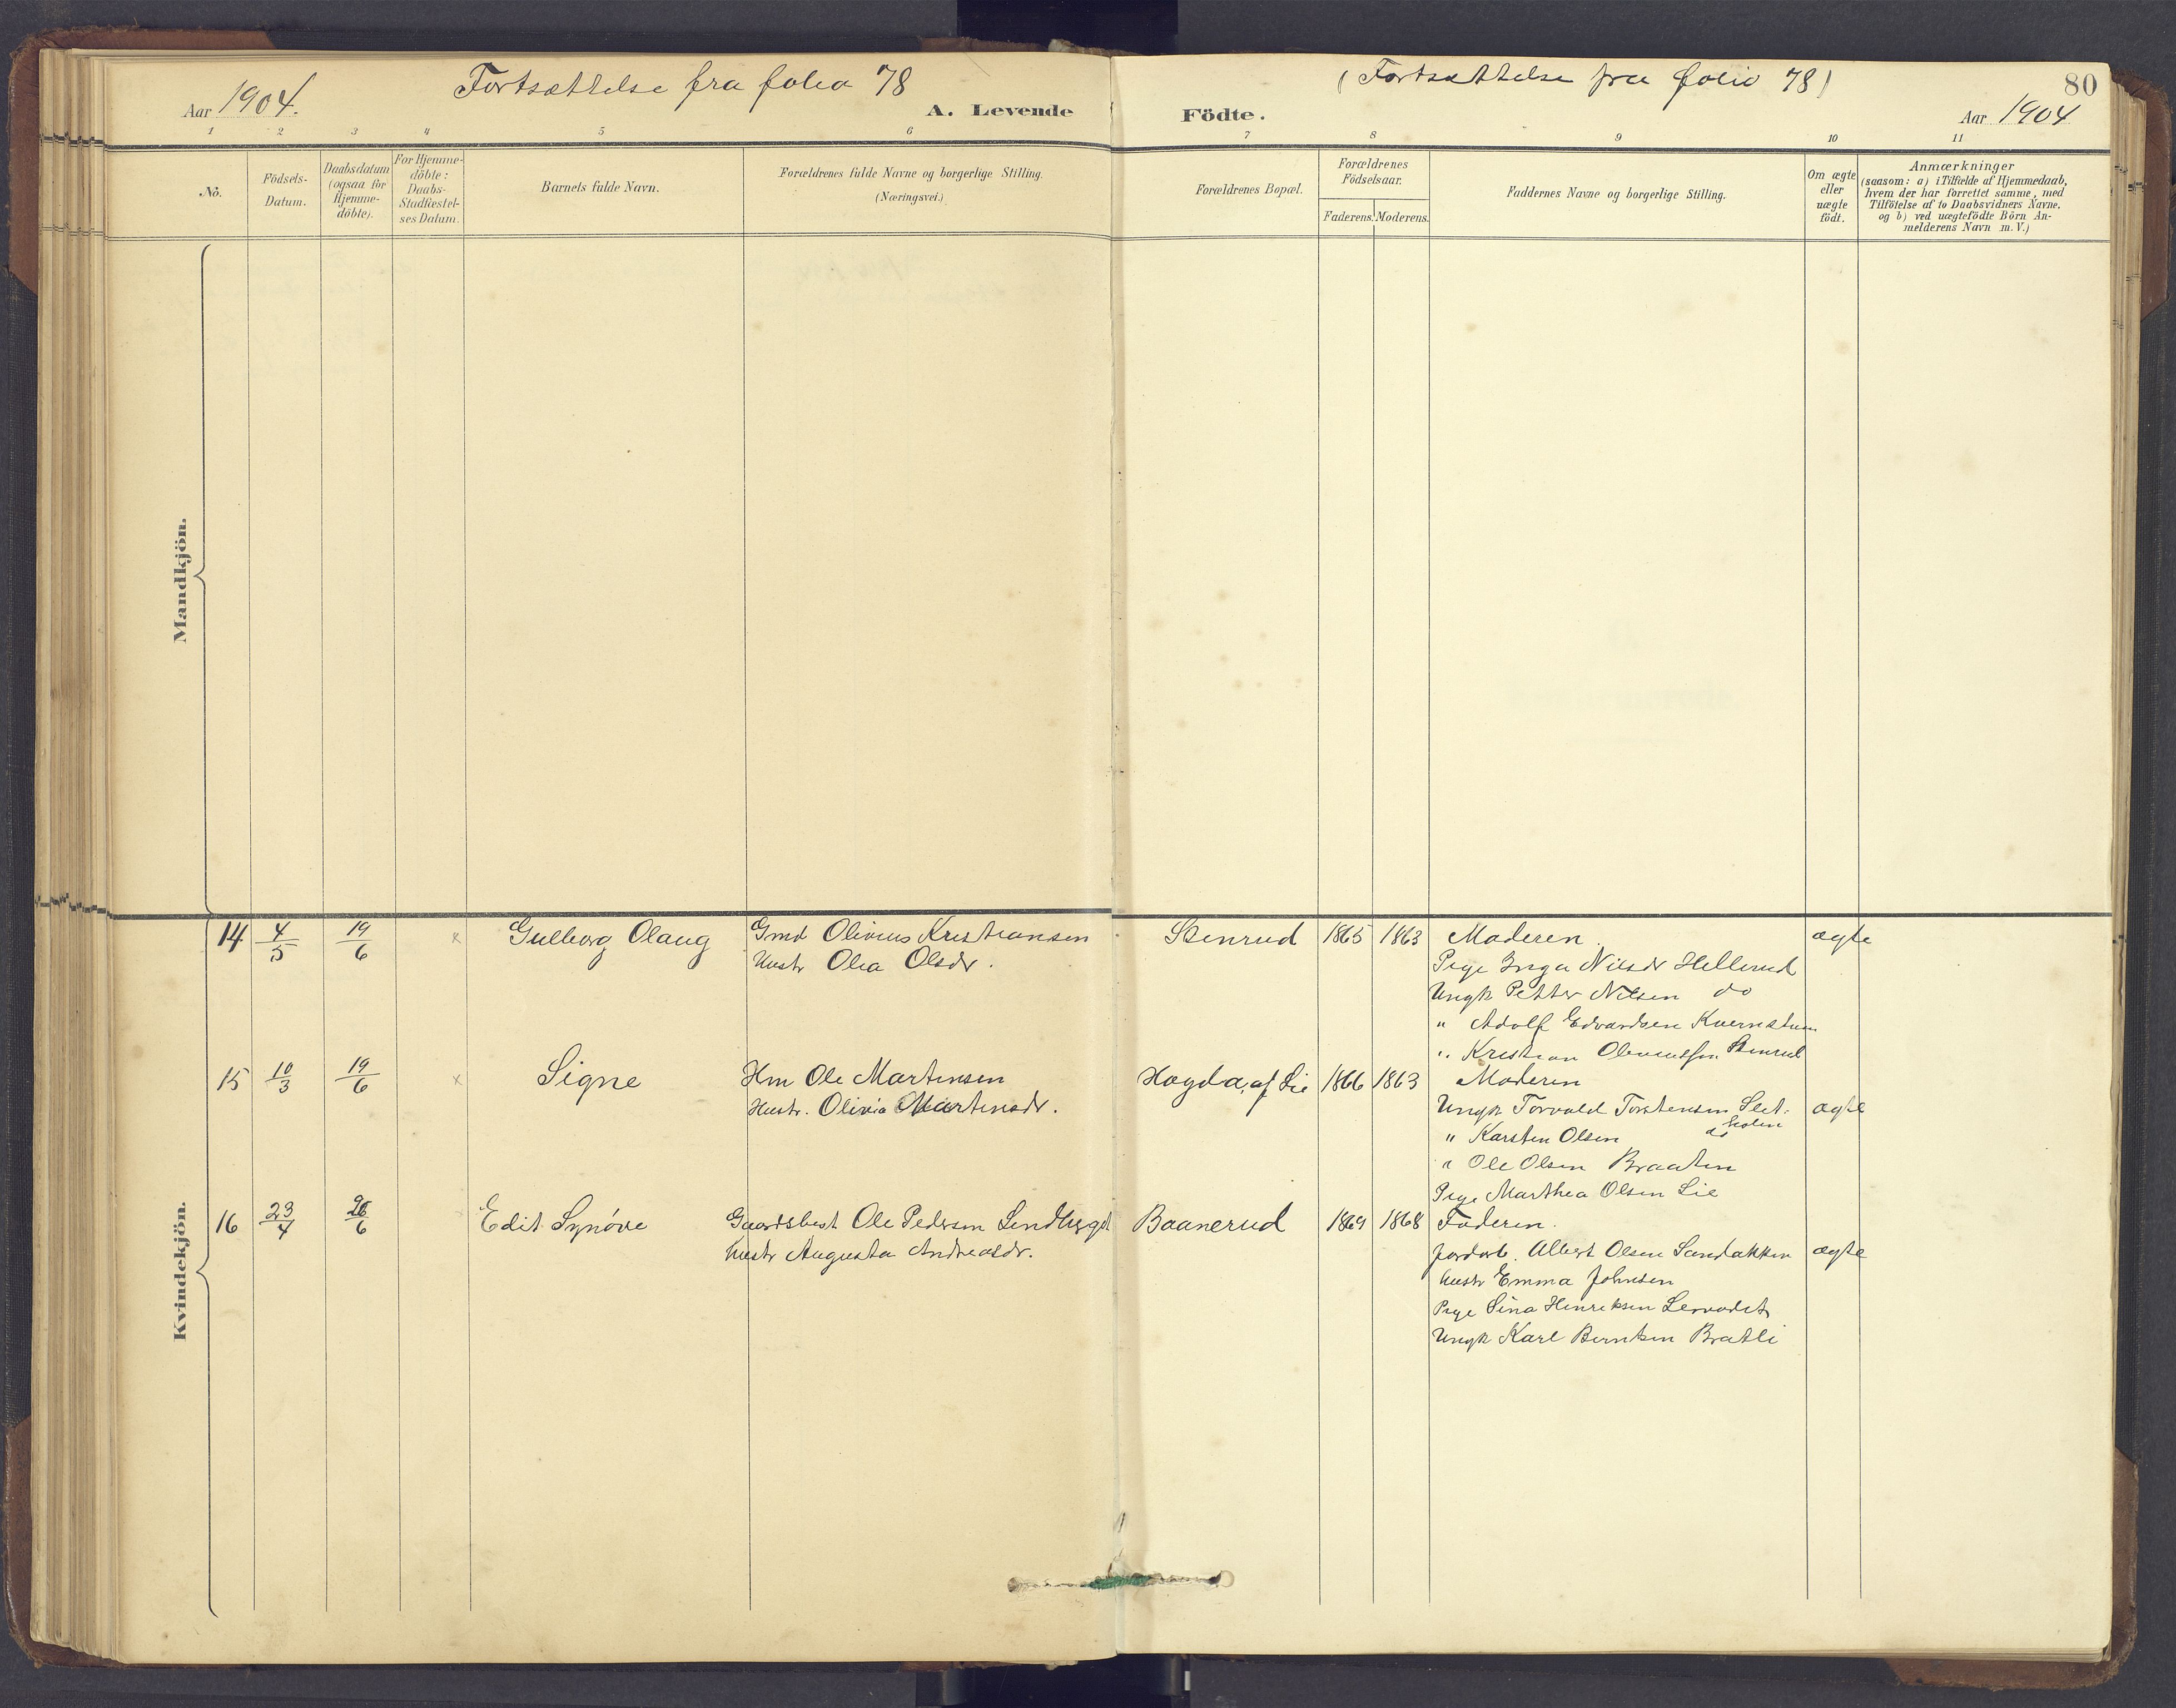 Fortsættelse fra folio 78
Aar 1904.
A. Levende
1 2 3 4 5 6
No.
Födsels-
Datum.
Daabsdatum
(ogsaa for
Hjemme-
döbte).
For Hjemme-
döbte:
Daabs-
Stadfæstel-
ses Datum.
Barnets fulde Navn.
Forældrenes fulde Navne og borgerlige Stilling.
(Næringsvei.)
Mandkjön.
14 4/5 19/6 x Gulborg Olaug Gmd Olivius Kristiansen
Hustr Olea Olsdr.
15 10/3 19/6 x Signe Hm Ole Martinsen
Hustr. Olivia Martinsdr.
16 23/4 26/6 Edit Synöve Gaardsbest Ole Pedersen Lendhegd
Hustr Augusta Andreasdr.
Kvindekjön.
(Fortsættelse fra folio 78)
80
Födte.
Aar 1904
7 8 9 10 11
Forældrenes Bopæl.
Forældrenes
Födselsaar.
Faderens. Moderens.
Faddernes Navne og borgerlige Stilling.
Om ægte
eller
uægte
födt.
Anmærkninger
(saasom: a) i Tilfælde af Hjemmedaab,
hvem der har forrettet samme, med
Tilföielse af to Daabsvidners Navne,
og b) ved uægtefödte Börn An-
melderens Navn m. V.)
Stenrud 1865 1863 Moderen. ægte
Pige Inga Nilsdr Hellerud
Ungk Petter Nilsen do
" Adolf Edvardsen Kvernstuen
" Kristian Oliviussen Stenrud
Hogda, af Lie 1866 1863 Moderen
Ungk Torvald Torstensen Slet- ægte
holen
" Karsten Olsen do
" Ole Olsen Braaten
Pige Marthea Olsen Lie
Baanerud 1869 1868 Faderen.
Jordarb. Albert Olsen Sandakken ægte
Hustr Emma Johnsen
Pige Sina Henriksen
Ungk Karl Berntsen Bratli